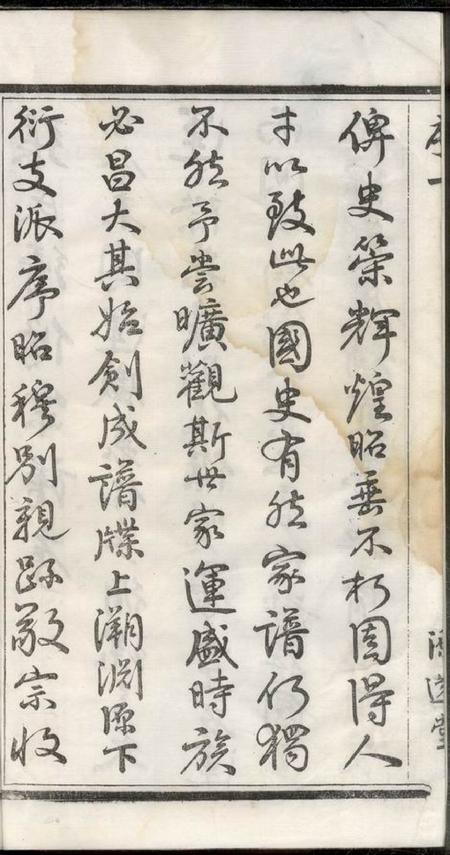 俾史策輝煌昭垂不朽固得人
才以致此也國史有然家譜何獨
不然予嘗曠觀斯世家運盛時族
必昌大其始創成譜牒上溯淵源下
衍支派序昭穆別親疎敬宗收